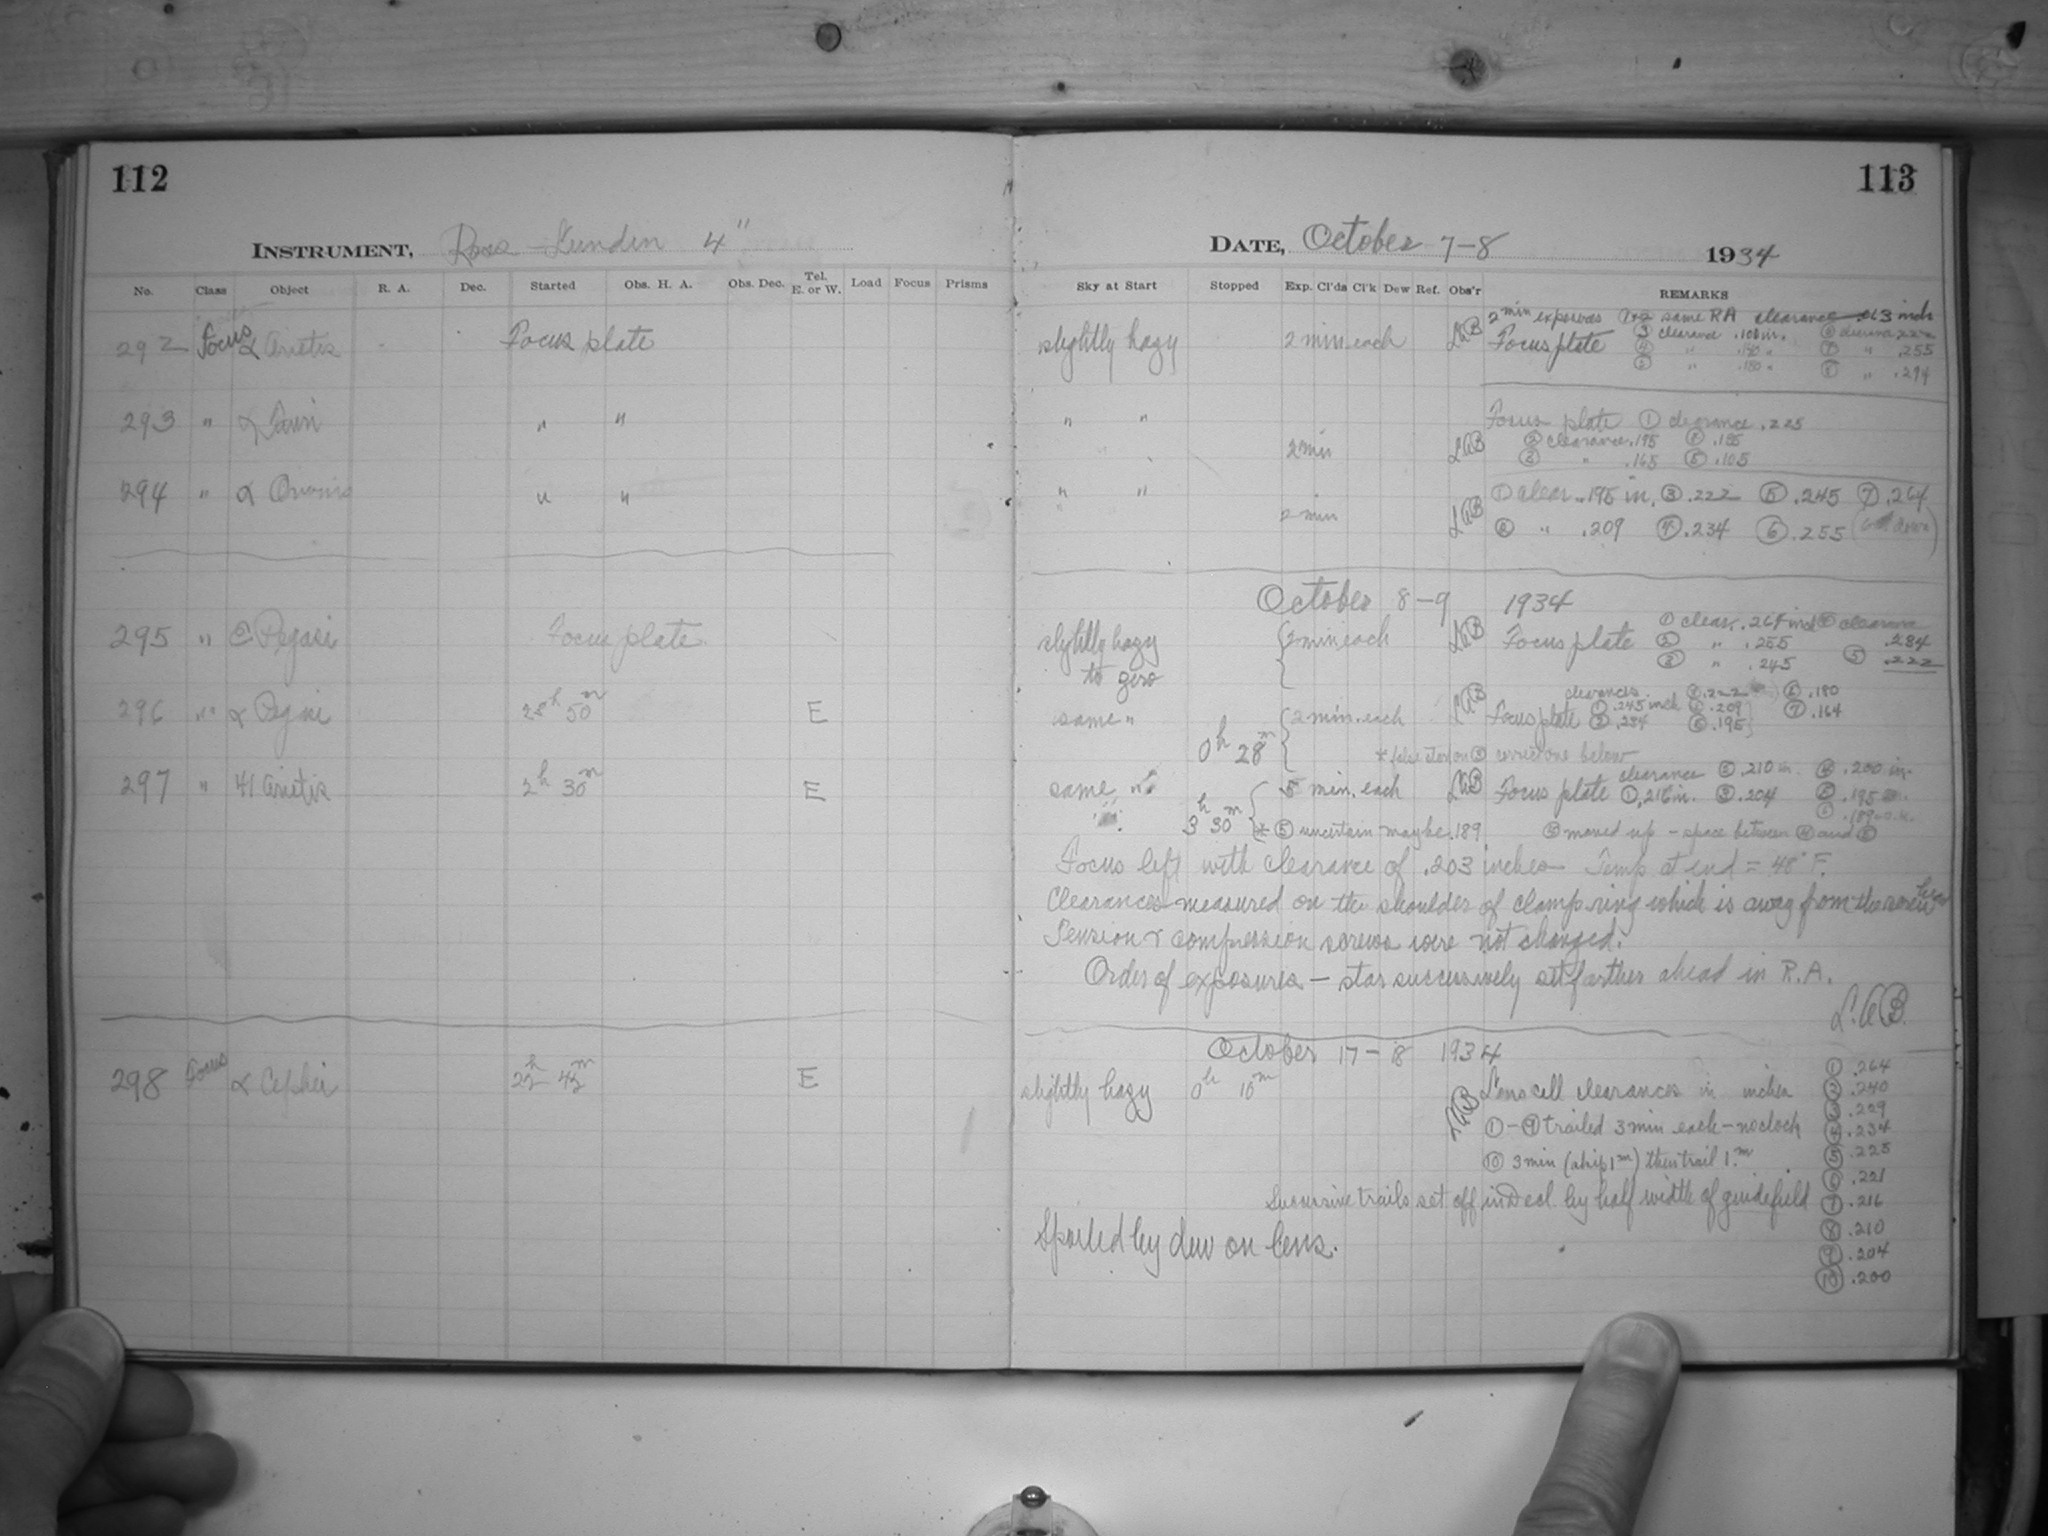 112
INSTRUMENT, Ross - Lundin 4"
No. Class Object R. A. Dec. Started Obs. H. A. Obs. Dec. Tel. E. or W. Load Focus Prisms
292 Focus α Arietis Focus plate
293 " α Tauri " "
294 " α " "
295 " ε Pegasi Focus plate
296 " α 50m E
297 " 41 Arietis 2h 30m E
298 Focus α Cephei 22h 42m E
113
DATE, October 7-8 1934
Sky at Start Stopped Exp. Cl'ds Cl'k Dew Ref. Obs'r REMARKS
2 min exposures 1+2 same RA clearance inch
slightly hazy 2 min each LAB Focus plate ③ clearance
④ " ⑦ " .255
⑤ " .180 " ⑧ " .294
" " Focus plate ① clearance .225
2 min LAB ② clearance .195 ④
③ " .165 ⑤ .105
" " ① clear. .195 in. ③ .222 ⑤ .245 ⑦ .264
2 min LAB ② " .209 ④ .234 ⑥ .255
October 8-9 1934
slightly hazy to zero 2 min each LAB Focus plate ① clear. ④ clearance .234
② " .255
③ " .245 ⑤ .222
same " 2 min. each LAB Focus plate clearances ① .245 inch ② .234 ③ .222 ④ .209 ⑤ .195 ⑥ .180 ⑦ .164
0h 28m
same " 5 min. each LAB Focus plate clearance ① .216 in. ② .210 in. ③ .204 ④ .200 in. ⑤ .195
3h 30m * ⑤ uncertain maybe .189 ⑤ moved up - space between ④ and ⑤
Focus left with clearance of .203 inches Temp at end = 48° F.
Clearances measured on the shoulder of clamp ring which is away from the
Tension & compression screws were not changed.
Order of exposures - star successively set farther ahead in R.A.
L.A.B.
October 17-18 1934
slightly hazy 0h 10m LAB Lens cell clearances in inches
①-⑨ trailed 3 min each - no clock
⑩ 3 min (skip 1m) then trail 1m
Successive trails set off in Decl. by half width of guidefield
Spoiled by dew on lens.
① .264
② .240
③ .229
④ .234
⑤ .225
⑥ .221
⑦ .216
⑧ .210
⑨ .204
⑩ .200